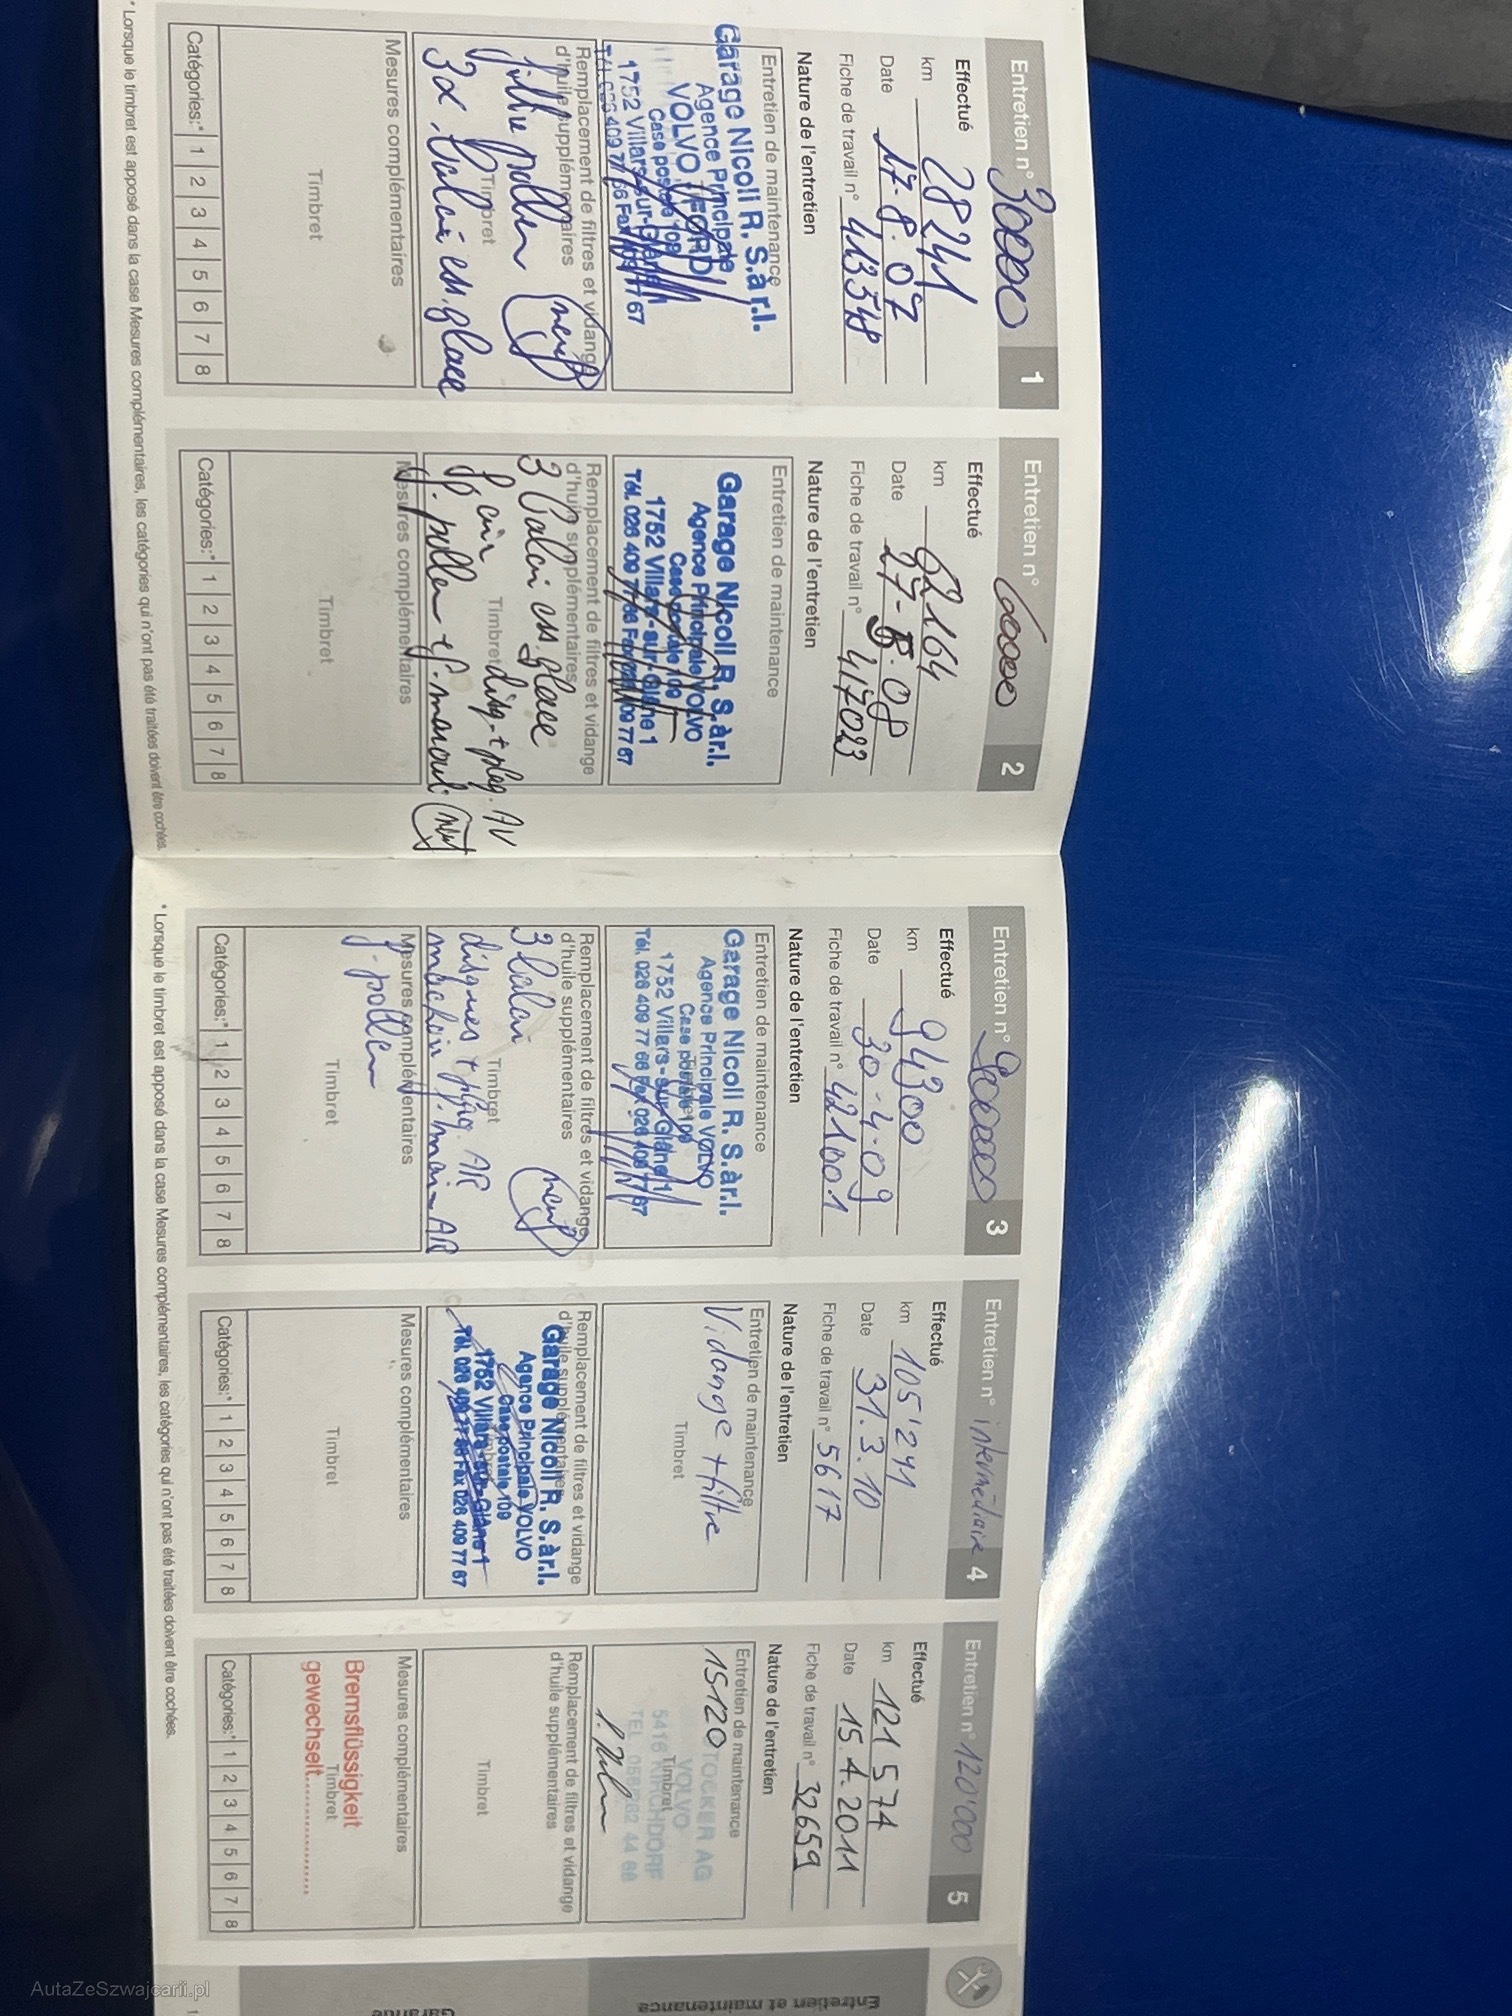 Entretien n° 30000 1
Effectué
km 28241
Date 17.8.07
Fiche de travail n° 413548
Nature de l'entretien
Entretien de maintenance
Garage Nicoli R. S.à r.l.
Agence Principale
VOLVO FORD
Case postale 109
1752 Villars-sur-Glâne 1
Remplacement de filtres et vidange
d'huile supplémentaires
filtre pollen
Timbret
3x balai ess. glace
Mesures complémentaires
Timbret
Catégories:* 1 2 3 4 5 6 7 8
Entretien n° 60000 2
Effectué
km 62164
Date 27-5.08
Fiche de travail n° 417023
Nature de l'entretien
Entretien de maintenance
Garage Nicoli R. S.àr.l.
Agence Principale VOLVO
Case postale 109
1752 Villars-sur-Glâne 1
Tél. 026 409 77 66 Fax 026 409 77 67
Remplacement de filtres et vidange
d'huile supplémentaires
3 balai ess. glace
f. air disq. + plaq. AV
Timbret
f. pollen + f.
Mesures complémentaires
Timbret
Catégories:* 1 2 3 4 5 6 7 8
* Lorsque le timbret est apposé dans la case Mesures complémentaires, les catégories qui n'ont pas été traitées doivent être cochées.
Entretien n° 90000 3
Effectué
km 94300
Date 30-4-09
Fiche de travail n° 421601
Nature de l'entretien
Entretien de maintenance
Garage Nicoli R. S.àr.l.
Agence Principale VOLVO
Case postale 109
1752 Villars-sur-Glâne 1
Tél. 026 409 77 66 Fax 026 409 77 67
Remplacement de filtres et vidange
d'huile supplémentaires
3 balai
Timbret
disques + plaq. AR
machoir f. main AR
Mesures complémentaires
f. pollen
Timbret
Catégories:* 1 2 3 4 5 6 7 8
Entretien n° intermédiaire 4
Effectué
km 105'241
Date 31.3.10
Fiche de travail n° 5617
Nature de l'entretien
Entretien de maintenance
Vidange + filtre
Timbret
Remplacement de filtres et vidange
d'huile supplémentaires
Garage Nicoli R. S.àr.l.
Agence Principale VOLVO
Case postale 109
1752 Villars-sur-Glâne 1
Tél. 026 409 77 66 Fax 026 409 77 67
Mesures complémentaires
Timbret
Catégories:* 1 2 3 4 5 6 7 8
Entretien n° 120'000 5
Effectué
km 121 574
Date 15.4.2011
Fiche de travail n° 32659
Nature de l'entretien
Entretien de maintenance
15120
TOCKER AG
VOLVO
Timbret
5416 KIRCHDORF
Remplacement de filtres et vidange
d'huile supplémentaires
Timbret
Mesures complémentaires
Bremsflüssigkeit
Timbret
gewechselt..............
Catégories:* 1 2 3 4 5 6 7 8
* Lorsque le timbret est apposé dans la case Mesures complémentaires, les catégories qui n'ont pas été traitées doivent être cochées.
Entretien et maintenance
Garantie
AutaZeSzwajcarii.pl